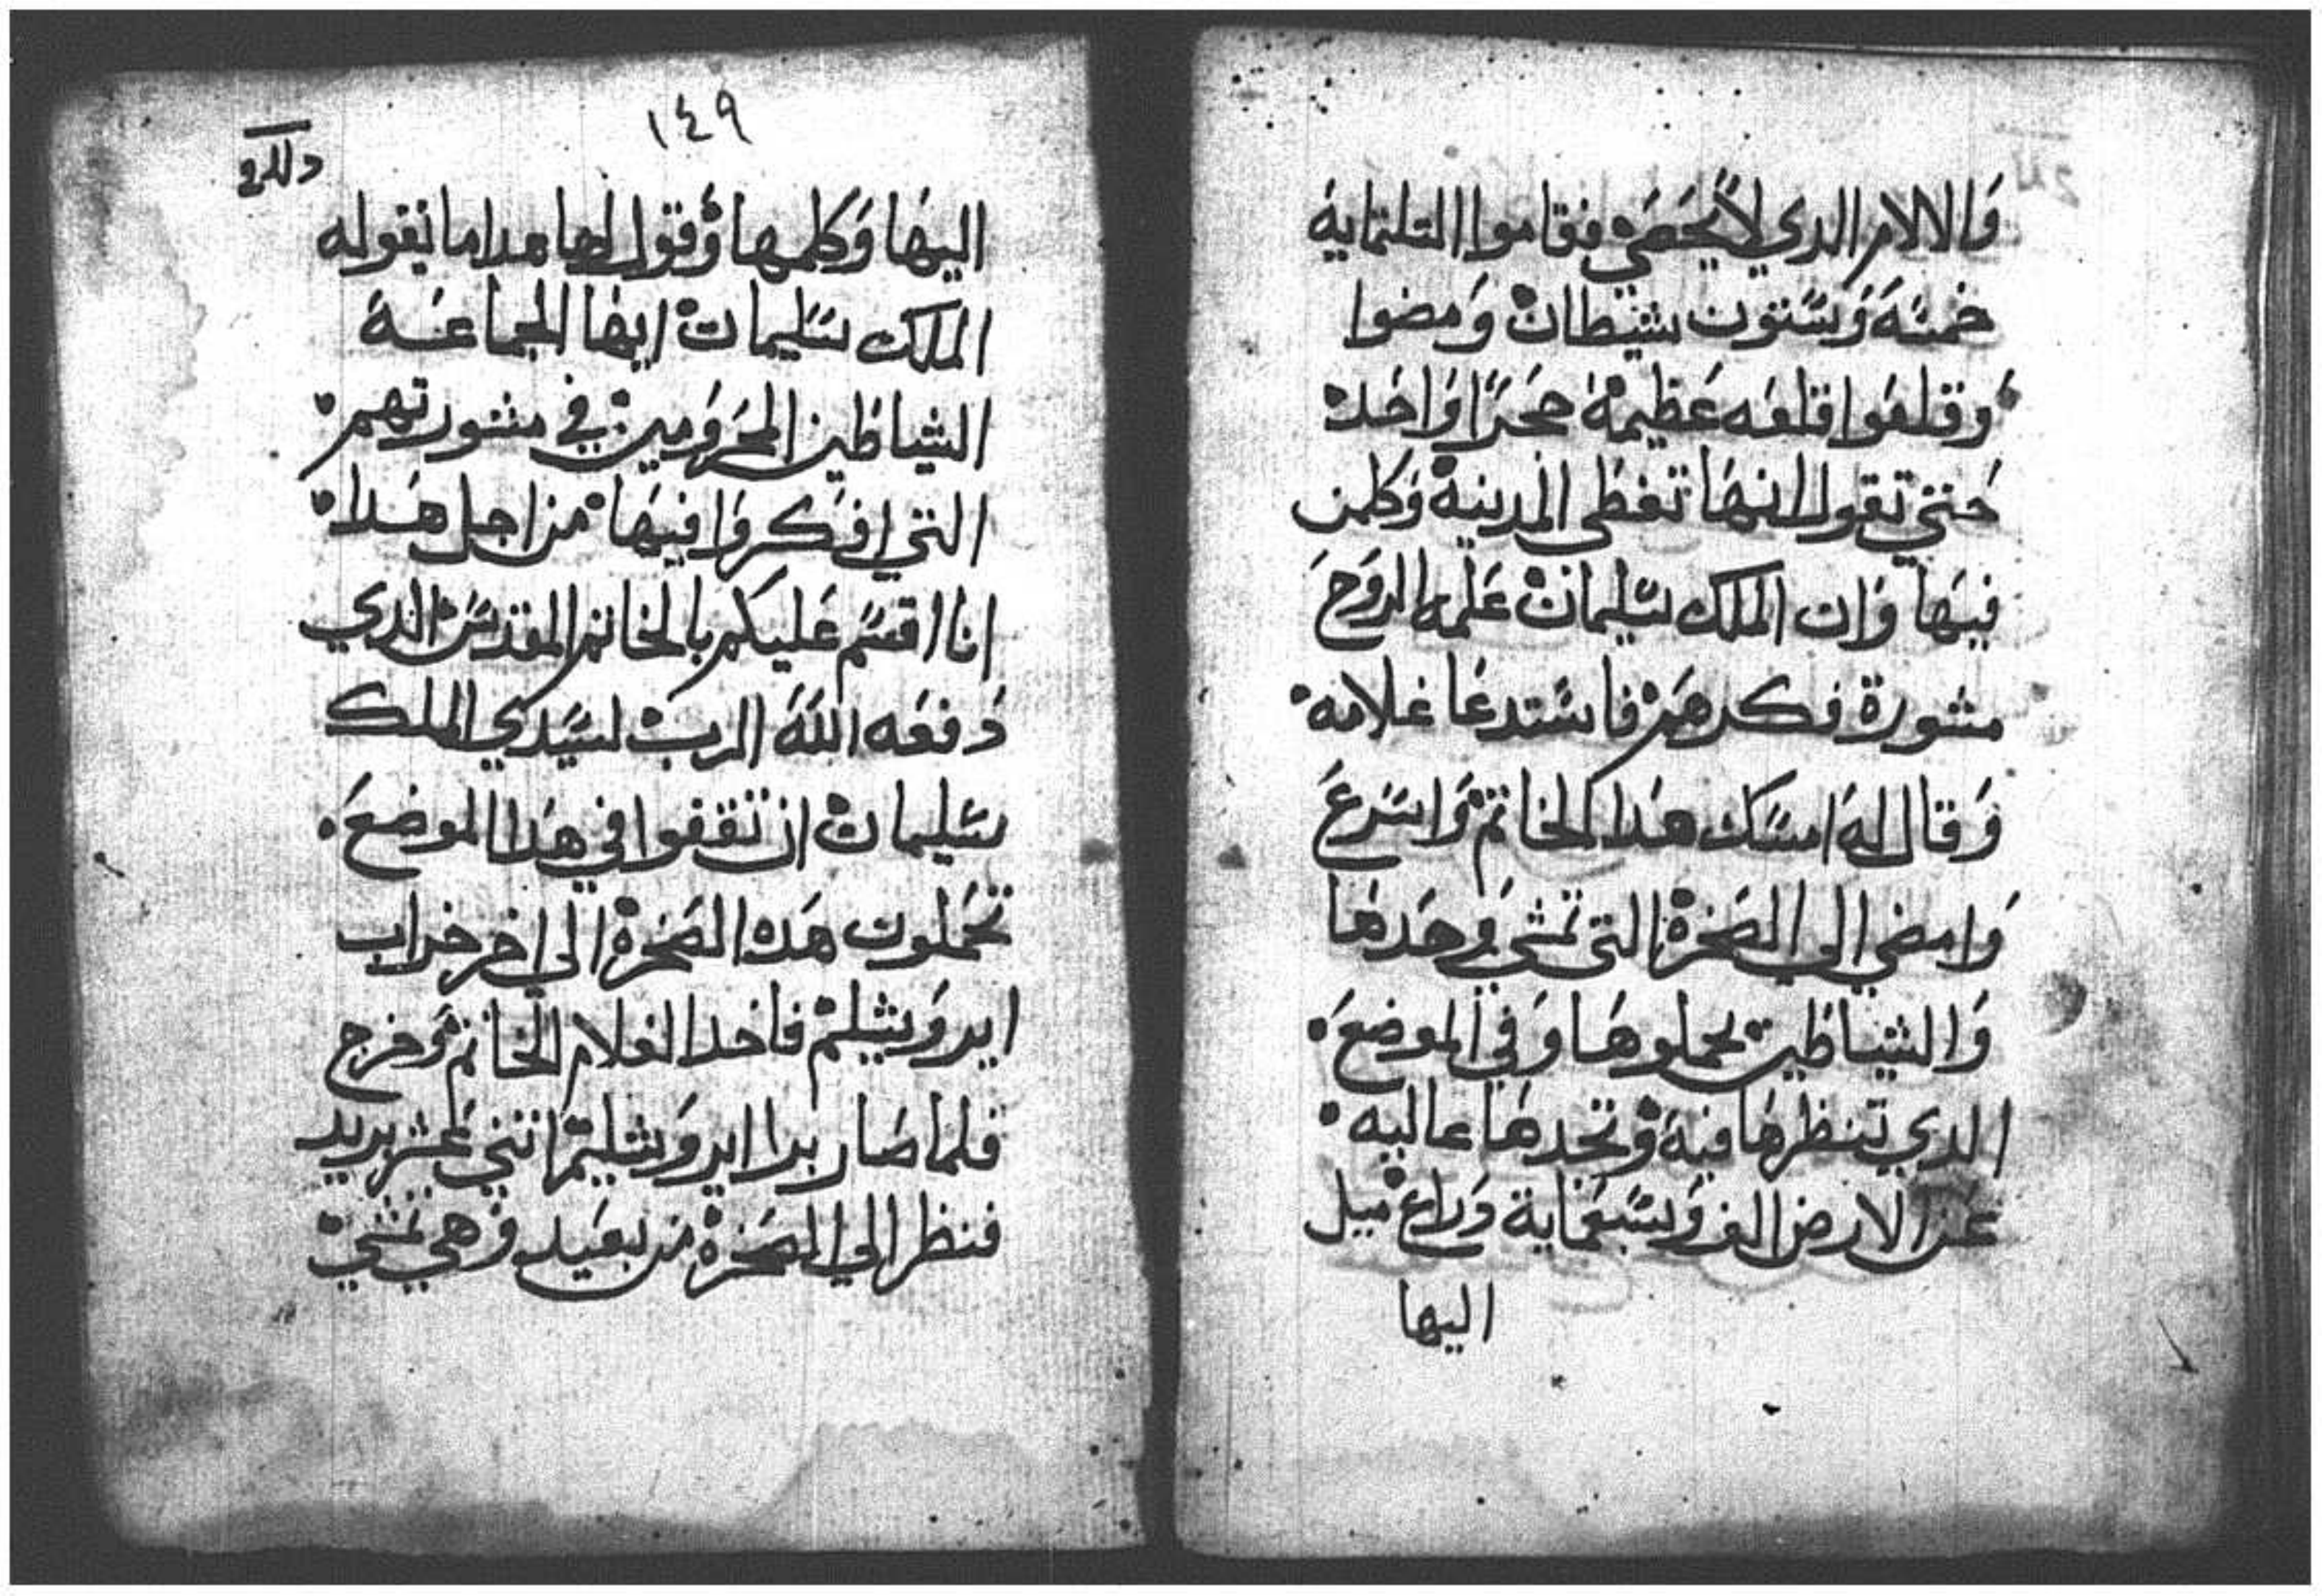 والالام الدي لا يحصي فقاموا التلتماية
خمسة وستون شيطان ومضوا
وقلعوا قلعه عظيمة حجرا واحد
حتي تقول انها تغطي المدينة وكلمن
فيها وان الملك سليمان علمه الروح
مشورة فكرهم فاستدعا غلامه
وقال له امسك هدا الخاتم واسرع
وامضي الي الصخرة التي تمشي وحدها
والشياطين يحملوها وفي الموضع
الدي تنظرها فيه وتجدها عاليه
عن الارض الف وسبعماية دراع ميل
اليها
١٤٩
اليها وكلمها وقول لها هدا ما يقوله
الملك سليمان ايها الجماعة
الشياطين المحرومين في مشورتهم
التي افكروا فيها من اجل هدا
انا اقسم عليكم بالخاتم المقدس الدي
دفعه الله الرب لسيدي الملك
سليمان ان تقفوا في هدا الموضع
تحملون هده الصخرة الي اخر خراب
ايروشليم فاخد الغلام الخاتم وخرج
فلما صار برا ايروشليم اتني عشر بريد
فنظر الي الصخرة من بعيد وهي تمشي